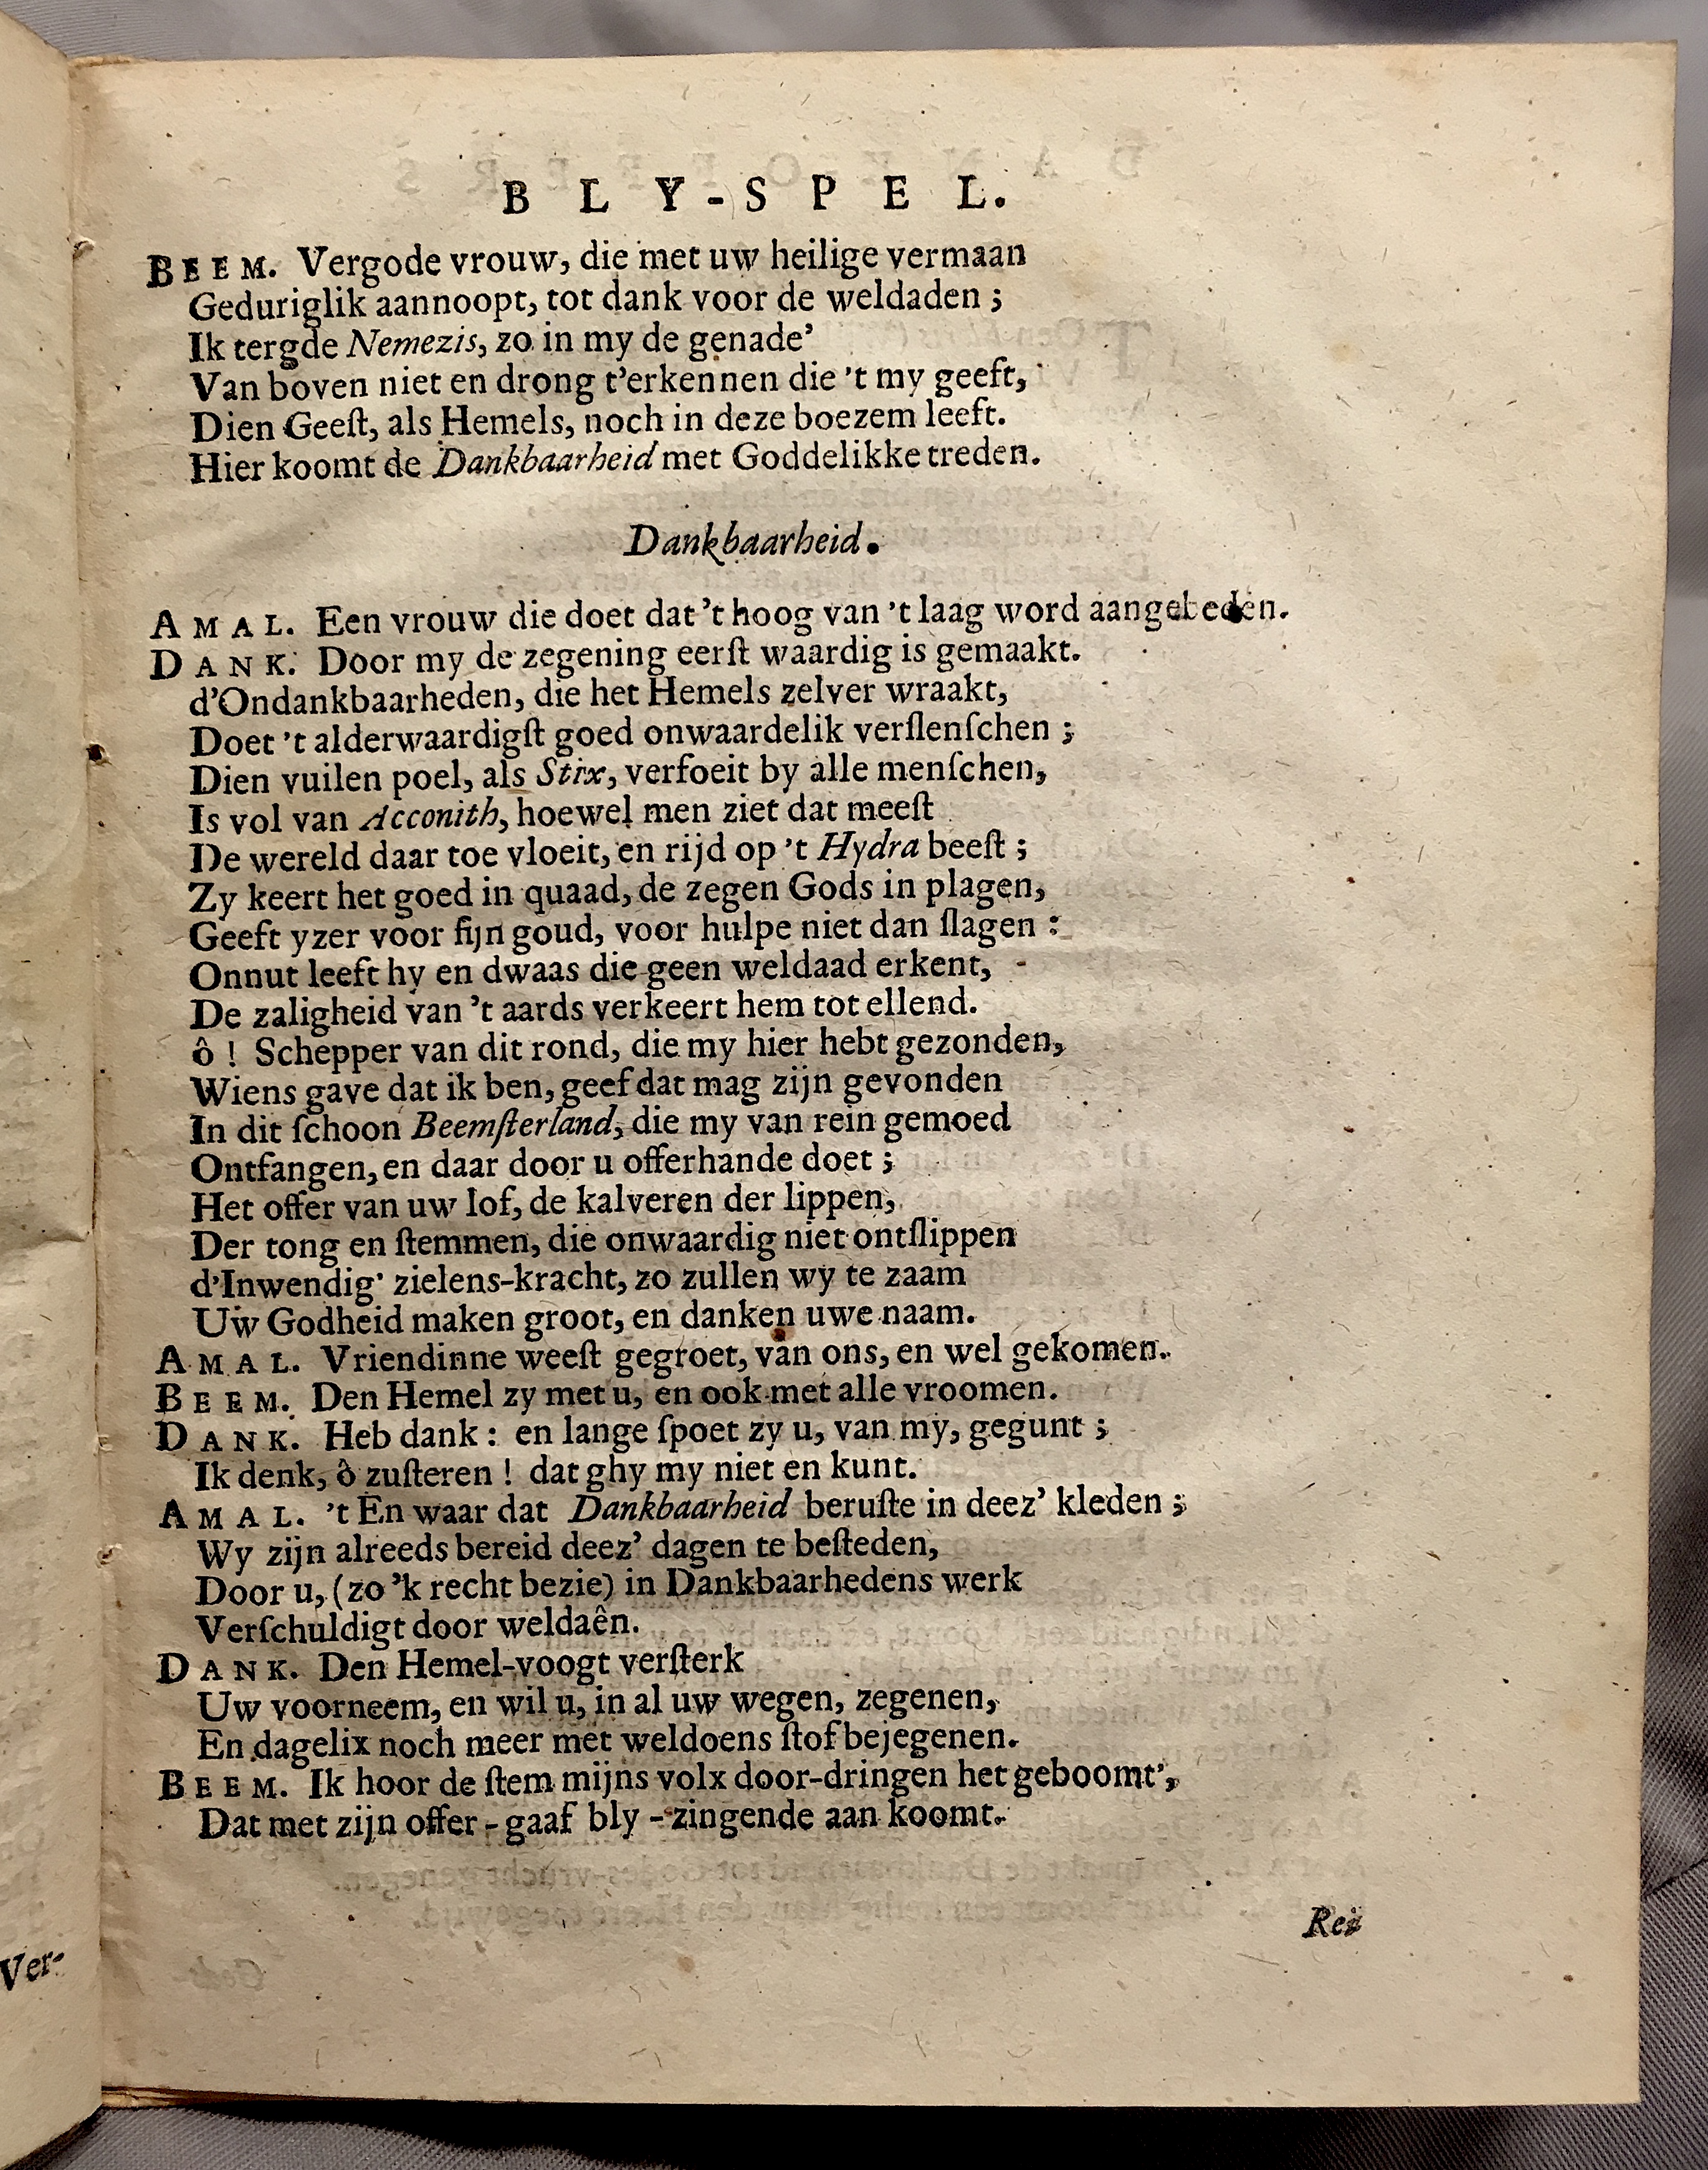 BLY-SPEL.
BEEM. Vergode vrouw, die met uw heilige vermaan
Geduriglik aannoopt, tot dank voor de weldaden ;
Ik tergde Nemezis, zo in my de genade’
Van boven niet en drong t’erkennen die ’t my geeft,
Dien Geeſt, als Hemels, noch in deze boezem leeft.
Hier koomt de Dankbaarheid met Goddelikke treden.
Dankbaarheid.
AMAL. Een vrouw die doet dat ’t hoog van ’t laag word aangebeden.
DANK. Door my de zegening eerſt waardig is gemaakt.
d’Ondankbaarheden, die het Hemels zelver wraakt,
Doet ’t alderwaardigſt goed onwaardelik verſlenſchen ;
Dien vuilen poel, als Stix, verfoeit by alle menſchen,
Is vol van Acconith, hoewel men ziet dat meeſt
De wereld daar toe vloeit, en rijd op ’t Hydra beeſt ;
Zy keert het goed in quaad, de zegen Gods in plagen,
Geeft yzer voor fijn goud, voor hulpe niet dan ſlagen :
Onnut leeft hy en dwaas die geen weldaad erkent,
De zaligheid van ’t aards verkeert hem tot ellend.
ô ! Schepper van dit rond, die my hier hebt gezonden,
Wiens gave dat ik ben, geef dat mag zijn gevonden
In dit ſchoon Beemſterland, die my van rein gemoed
Ontfangen, en daar door u offerhande doet ;
Het offer van uw lof, de kalveren der lippen,
Der tong en ſtemmen, die onwaardig niet ontſlippen
d’Inwendig’ zielens-kracht, zo zullen wy te zaam
Uw Godheid maken groot, en danken uwe naam.
AMAL. Vriendinne weeſt gegroet, van ons, en wel gekomen.
BEEM. Den Hemel zy met u, en ook met alle vroomen.
DANK. Heb dank : en lange ſpoet zy u, van my, gegunt ;
Ik denk, ô zuſteren ! dat ghy my niet en kunt.
AMAL. ’t En waar dat Dankbaarheid beruſte in deez’ kleden ;
Wy zijn alreeds bereid deez’ dagen te beſteden,
Door u, (zo ’k recht bezie) in Dankbaarhedens werk
Verſchuldigt door weldaên.
DANK. Den Hemel-voogt verſterk
Uw voorneem, en wil u, in al uw wegen, zegenen,
En dagelix noch meer met weldoens ſtof bejegenen.
BEEM. Ik hoor de ſtem mijns volx door-dringen het geboomt’,
Dat met zijn offer-gaaf bly-zingende aan koomt.
Rei
Ver-